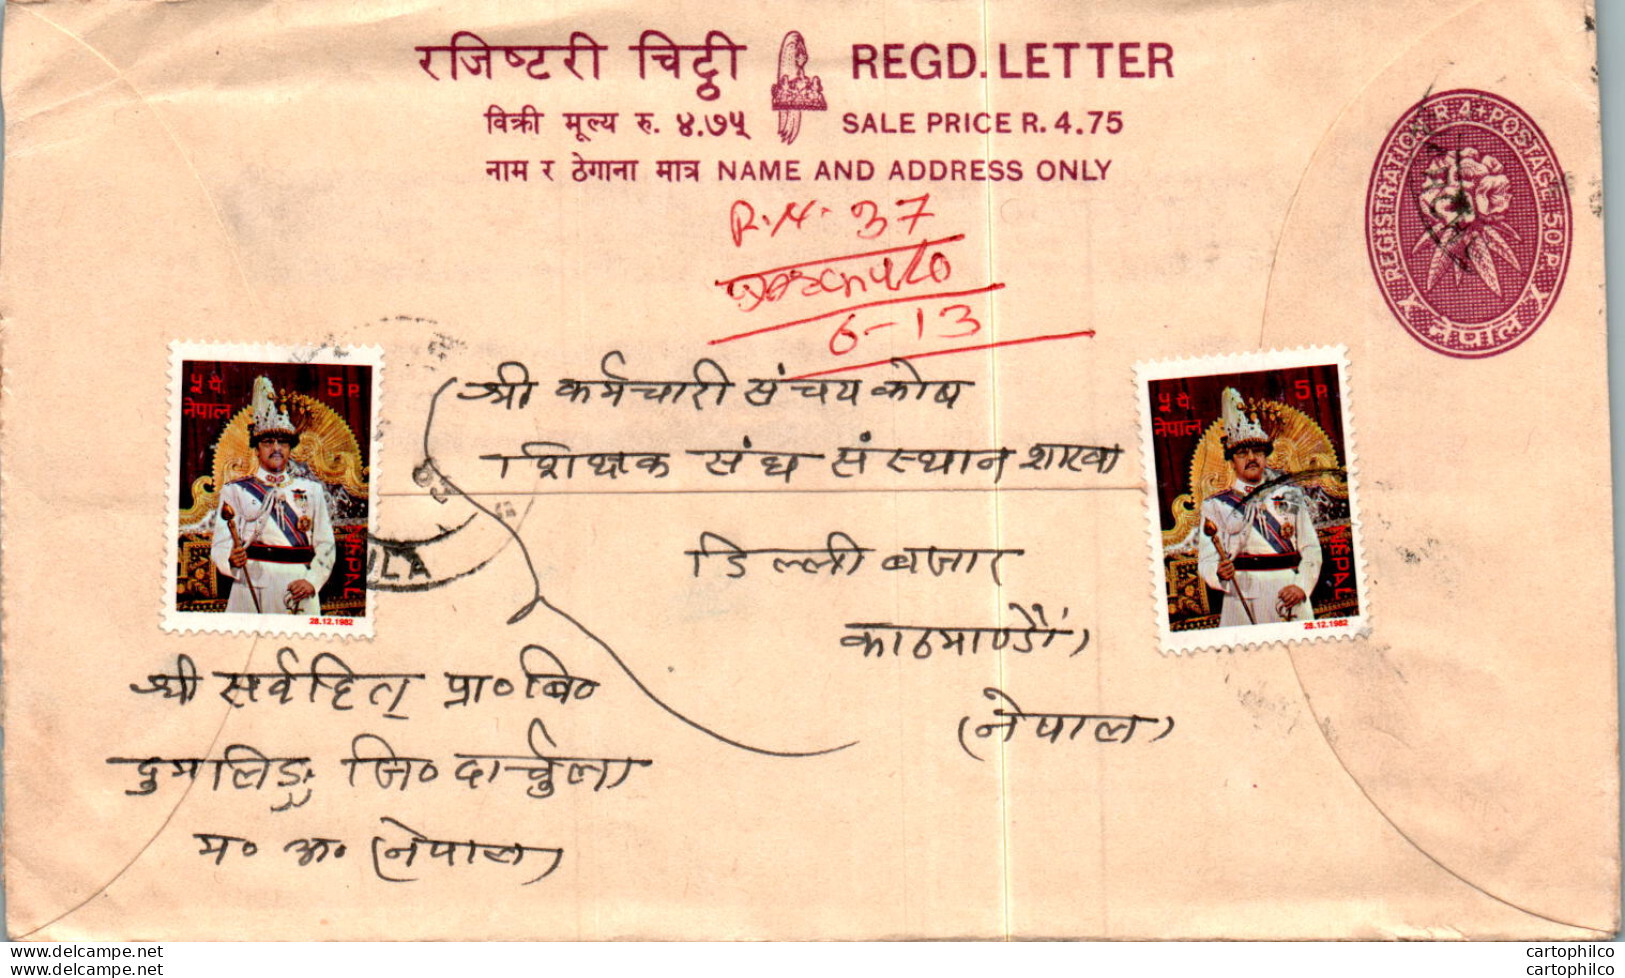 रजिष्टरी चिट्ठी REGD. LETTER
विक्री मूल्य रु. ४.७५ SALE PRICE R. 4.75
नाम र ठेगाना मात्र NAME AND ADDRESS ONLY
REGISTRATION R. 4. POSTAGE 50 P.
नेपाल
R.N. 37
6-13
५ पै. 5 P.
नेपाल
NEPAL
28.12.1982
५ पै. 5 P.
नेपाल
NEPAL
28.12.1982
ULA
श्री कर्मचारी संचय कोष
शिक्षक संघ संस्थान शाखा
डिल्ली बजार
काठमाण्डौं)
(नेपाल)
श्री सर्वहित् प्रा० बि०
दुमलिङ्ग जि० दार्चुला
म० अ० (नेपाल)
cartophilco
cartophilco
cartophilco
cartophilco